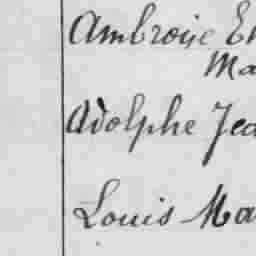 Ambroise E
Ma
Adolphe Jea
Louis Ma